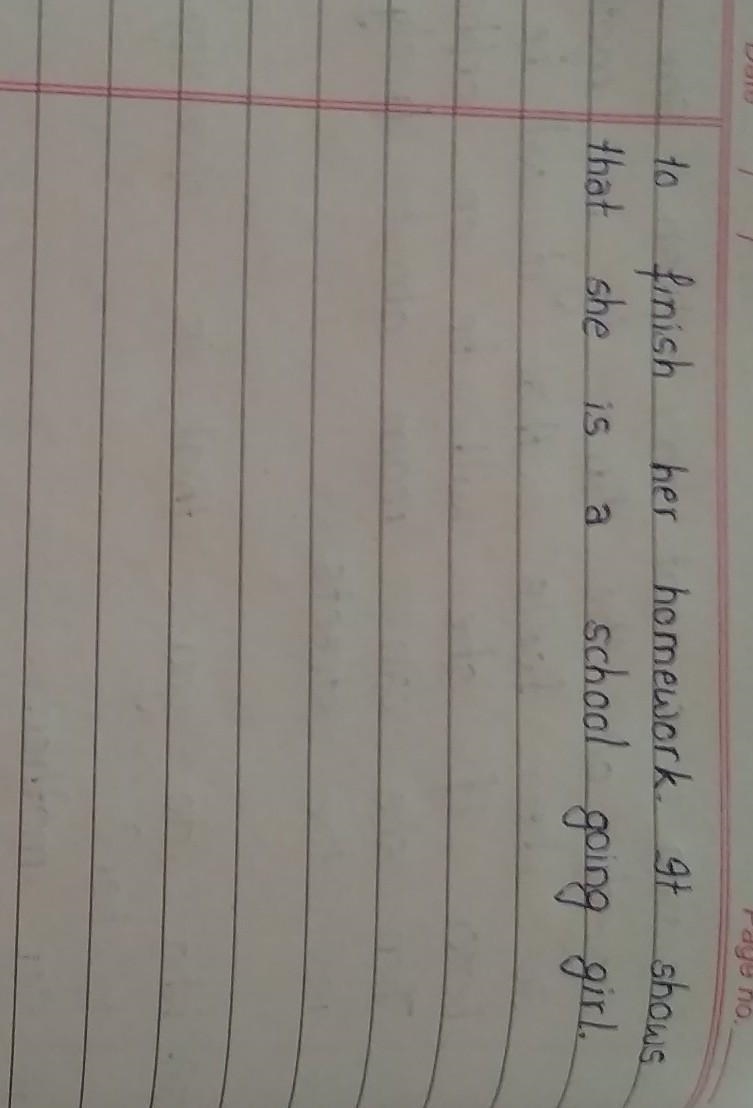 Page no.
to finish her homework. It shows
that she is a school going girl.